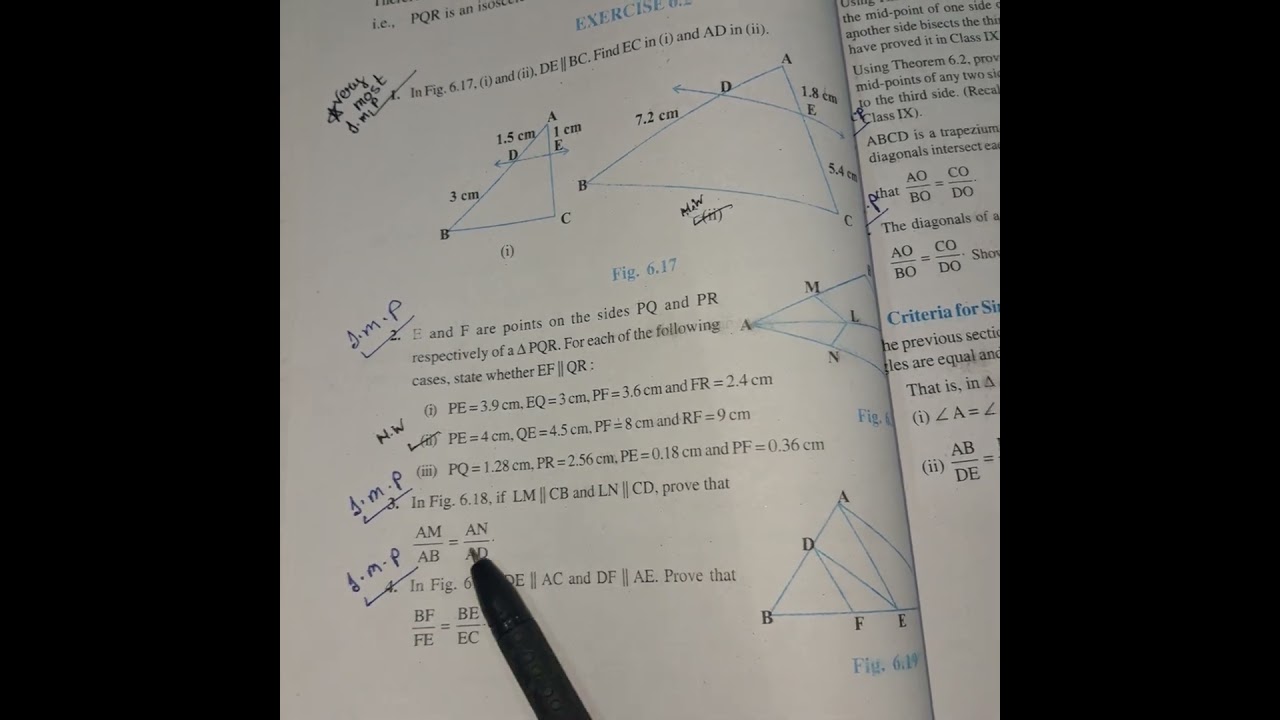 i.e., PQR is an
EXERCISE 6.2
★ very
most
I.M.P
1. In Fig. 6.17, (i) and (ii), DE || BC. Find EC in (i) and AD in (ii).
A
1.5 cm
1 cm
D
E
3 cm
B
C
(i)
A
D
1.8 cm
E
7.2 cm
5.4 cm
B
C
H.W
(ii)
Fig. 6.17
I.M.P
2. E and F are points on the sides PQ and PR
respectively of a Δ PQR. For each of the following
cases, state whether EF || QR :
(i) PE = 3.9 cm, EQ = 3 cm, PF = 3.6 cm and FR = 2.4 cm
H.W
(ii) PE = 4 cm, QE = 4.5 cm, PF = 8 cm and RF = 9 cm
(iii) PQ = 1.28 cm, PR = 2.56 cm, PE = 0.18 cm and PF = 0.36 cm
M
A
L
N
Fig.
I.M.P
3. In Fig. 6.18, if LM || CB and LN || CD, prove that
AM/AB = AN/AD.
I.M.P
4. In Fig. DE || AC and DF || AE. Prove that
BF/FE = BE/EC
A
D
B
F
E
Fig. 6.19
the mid-point of one side
another side bisects the
have proved it in Class IX
Using Theorem 6.2,
mid-points of any two
to the third side.
Class IX).
ABCD is a trapezium
diagonals intersect
that AO/BO = CO/DO.
The diagonals of a
AO/BO = CO/DO.
Criteria for
the previous
are equal and
That is, in Δ
(i) ∠ A = ∠
(ii) AB/DE =